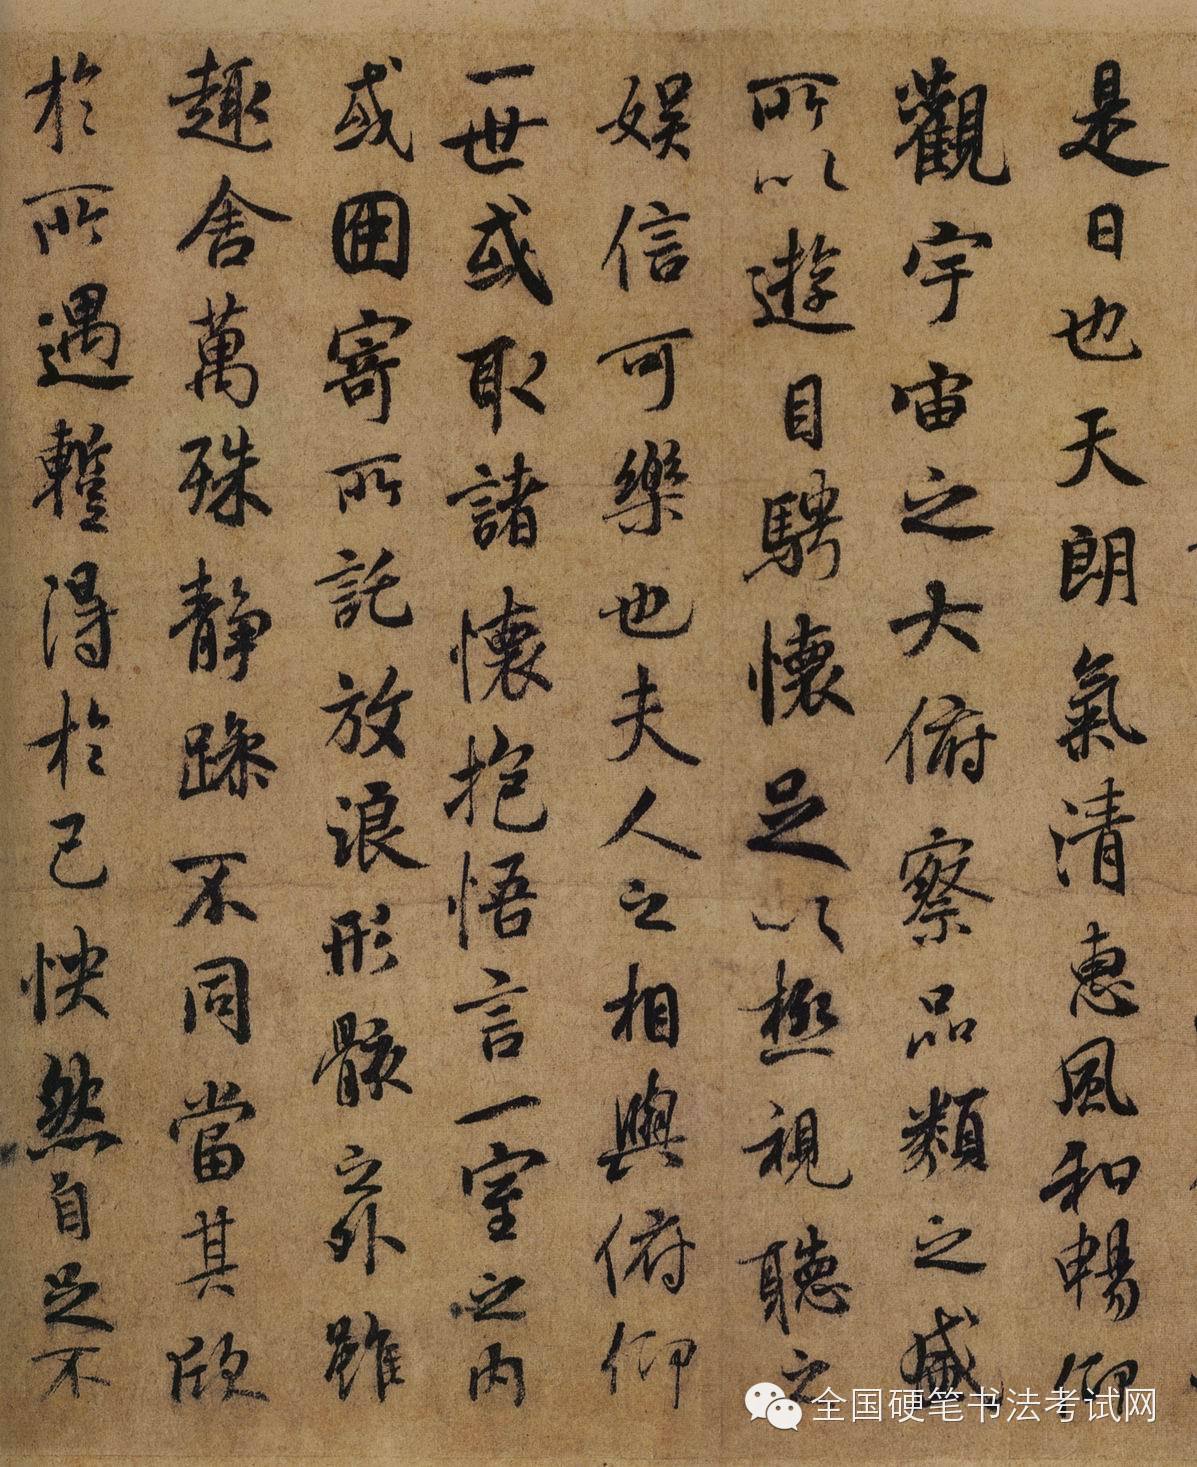 是日也天朗氣清惠風和暢仰
觀宇宙之大俯察品類之盛
所以遊目騁懷足以極視聽之
娛信可樂也夫人之相與俯仰
一世或取諸懷抱悟言一室之內
或因寄所託放浪形骸之外雖
趣舍萬殊靜躁不同當其欣
於所遇蹔得於己怏然自足不
全国硬笔书法考试网